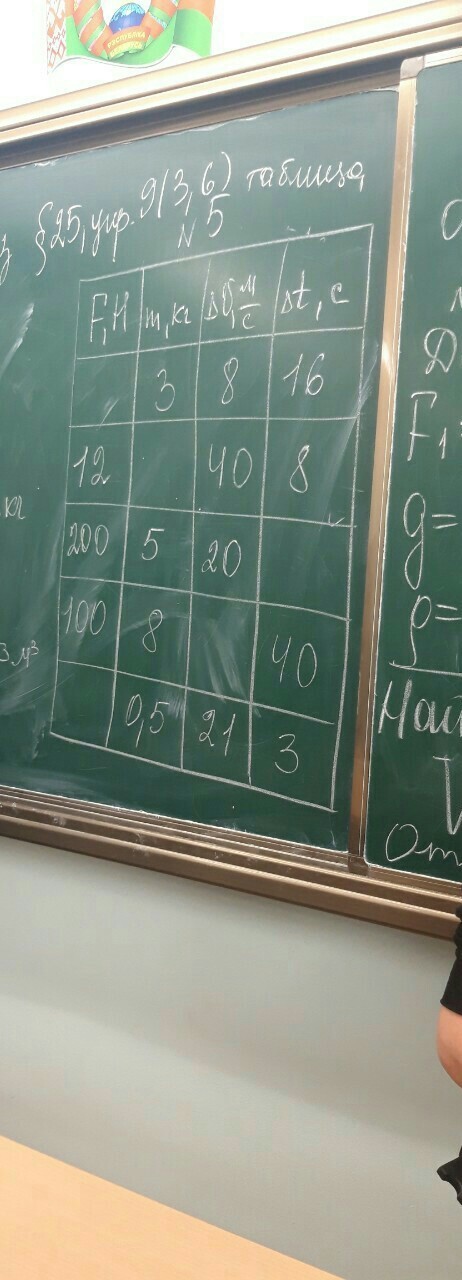 РЭСПУБЛIКА
БЕЛАРУСЬ
§25, упр. 9(3,6) таблица
N 5
F, Н m, кг Δυ, м/с Δt, с
3 8 16
12 40 8
200 5 20
100 8 40
0,5 21 3
кг
3 м³
Д
F₁
g=
ρ=
Най
V
От